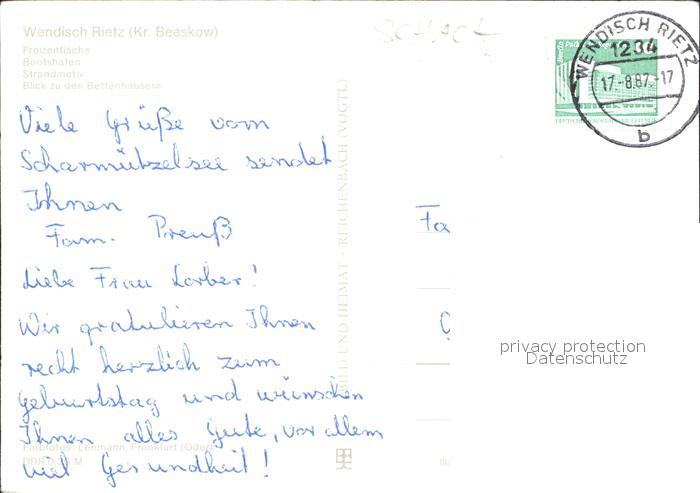 Wendisch Rietz (Kr. Beeskow)
Freizeitfläche
Bootshafen
Strandmotiv
Blick zu den Bettenhäusern
Viele Grüße vom
Scharmützelsee sendet
Ihnen
Fam. Preuß
Liebe Frau Lorber!
Wir gratulieren Ihnen
recht herzlich zum
Geburtstag und wünschen
Ihnen alles Gute, vor allem
viel Gesundheit!
Farbfotos: Lehmann, Frankfurt (Oder)
BILD UND HEIMAT · REICHENBACH (VOGTL)
WENDISCH RIETZ
1234
17.-8.87.-17
b
Fa
privacy protection
Datenschutz